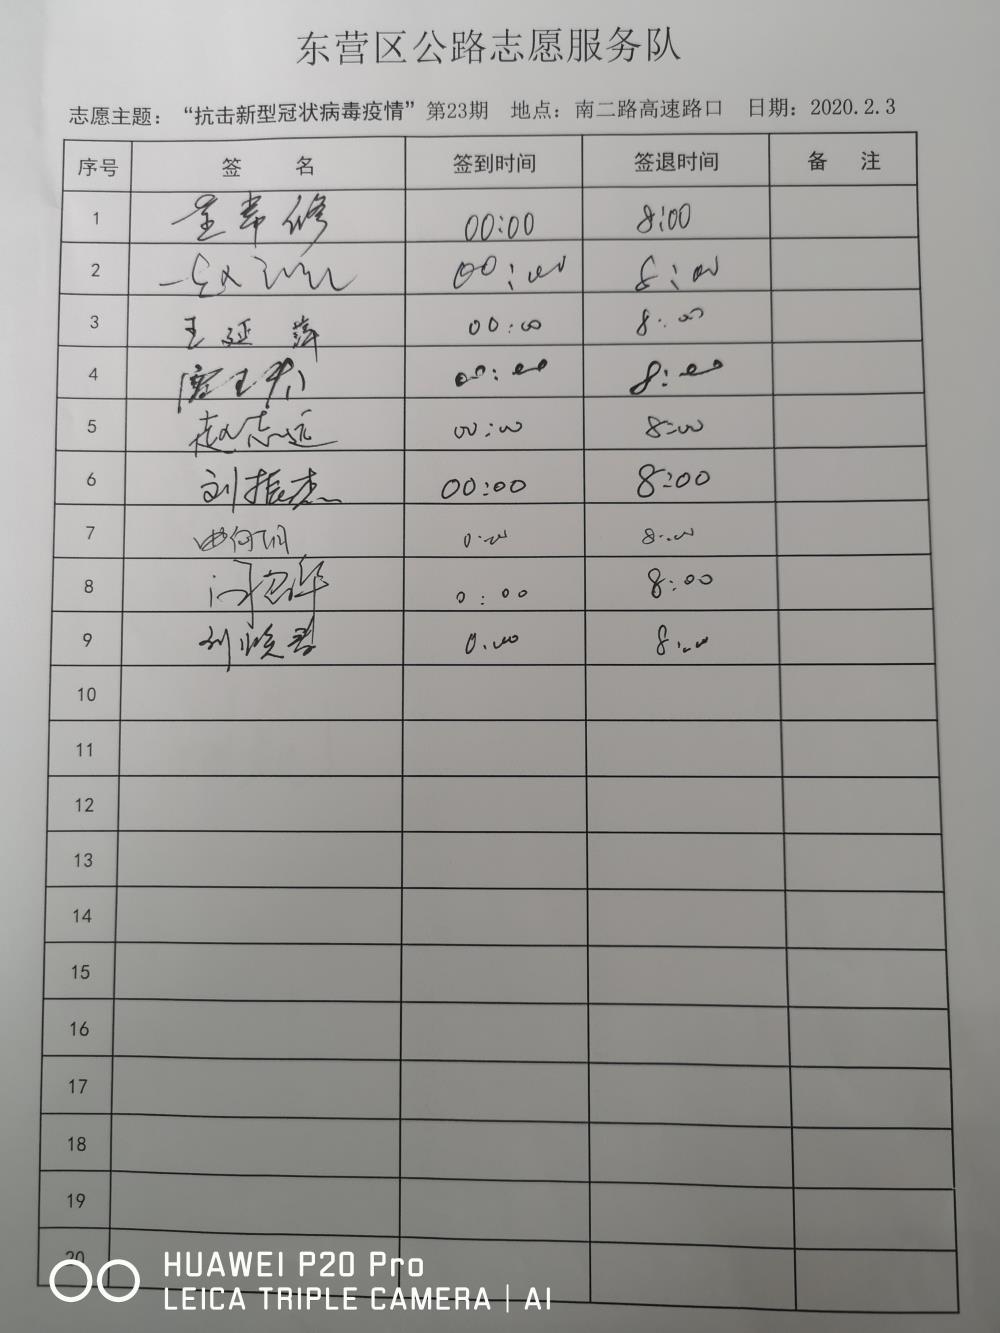 东营区公路志愿服务队
志愿主题：“抗击新型冠状病毒疫情”第23期 地点：南二路高速路口 日期：2020.2.3
序号 签 名 签到时间 签退时间 备 注
1 00:00 8:00
2 00:00 8:00
3 王延萍 00:00 8:00
4 00:00 8:00
5 赵志远 00:00 8:00
6 刘振杰 00:00 8:00
7 0:00 8:00
8 0:00 8:00
9 0:00 8:00
10
11
12
13
14
15
16
17
18
19
20
HUAWEI P20 Pro
LEICA TRIPLE CAMERA | AI